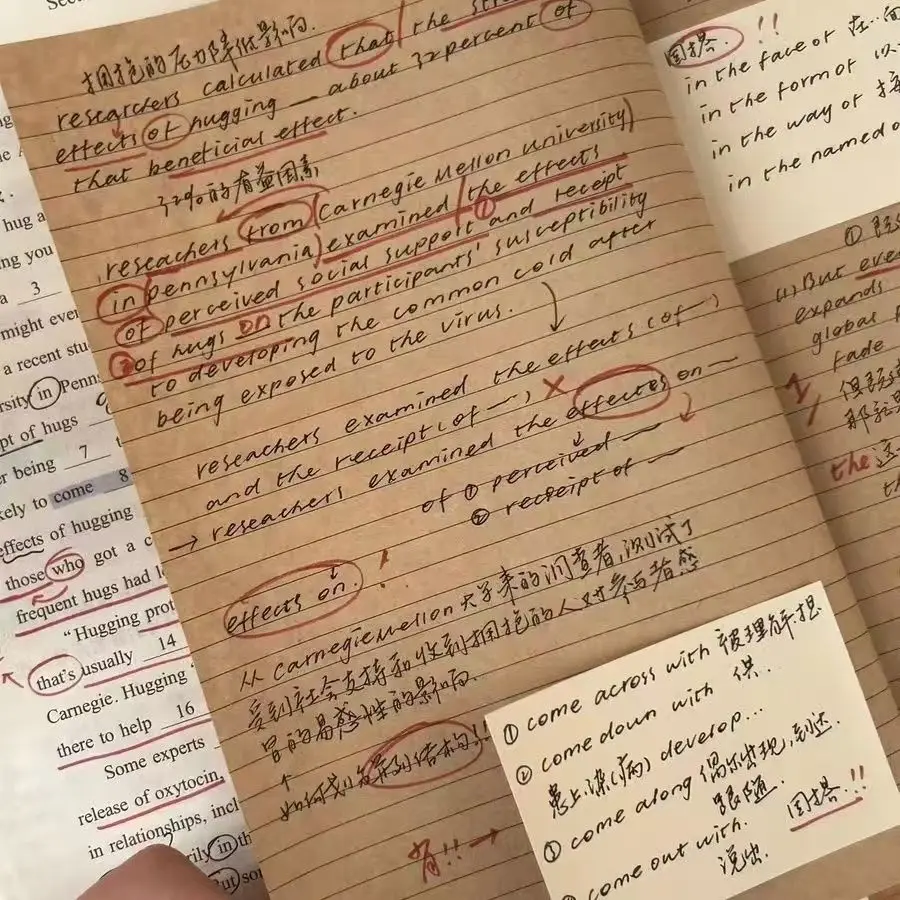 拥抱的压力降低影响.
researchers calculated that the
effects of hugging — about 32 percent of
that beneficial effect.
32%的有益因素
reseachers from (Carnegie Mellon University)
in pennsylvania) examined the effects
of perceived social support ① and receipt
② of hugs on the participants' susceptibility
to developing the common cold after
being exposed to the virus.
reseachers examined the effects (of —)
and the receipt (of —) ×
→ reseachers examined the effectes on —
of ① perceived —
② receipt of —
effects on. !
从 carnegie mellon 大学来的调查者,测试了
受到社会支持和收到拥抱的人对参与者感
冒的易感性的影响.
↑
如何划分并列结构!!
有!! →
① come across with 被理解.想
② come down with 供..
患上.染(病) develop...
③ come along 偶尔出现,到达.
跟随. 固搭.!!
come out with.
说出.
固搭. !!
in the face of 在
in the form of 以
in the way of
in the named
(1) But even
expands
global
fade
the 这
th
hug a
ng you
a 3
might ever
a recent stu
rsity in Penn
pt of hugs
er being 7 t
kely to come 8
effects of hugging
those who got a c
frequent hugs had l
"Hugging prot
that's usually 14
Carnegie. Hugging
there to help 16
Some experts
release of oxytocin,
in relationships, incl
rily in th
But son